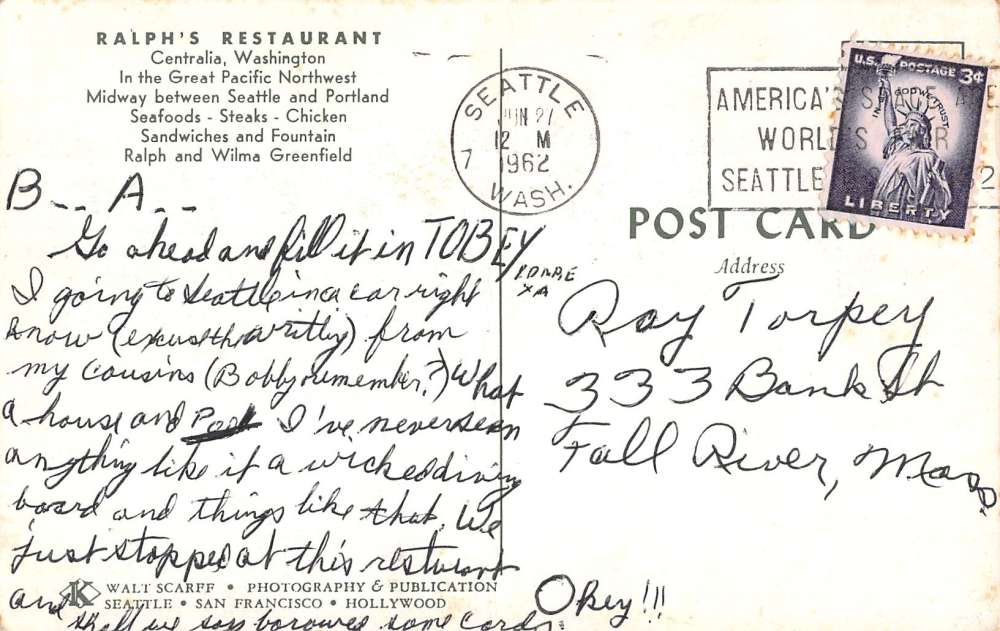 RALPH'S RESTAURANT
Centralia, Washington
In the Great Pacific Northwest
Midway between Seattle and Portland
Seafoods - Steaks - Chicken
Sandwiches and Fountain
Ralph and Wilma Greenfield
SEATTLE
JUN 27
12 M
7 1962
WASH.
AMERICA'S
WORLD'S
SEATTLE
U.S. POSTAGE 3¢
IN GOD WE TRUST
LIBERTY
POST CARD
Address
B__ A__
Go ahead and fill it in TOBEY
I going to Seattle in a car right
know (excus the writting) from
my cousins (Bobby remember?) What
a house and Pool I've never seen
anything like it a wicked diving
board and things like that. We
just stopped at this resturant
and
shall we say borowed some cards
Ray Torpey
333 Bank St
Fall River, Mass.
Okey!!!
WALT SCARFF • PHOTOGRAPHY & PUBLICATION
SEATTLE • SAN FRANCISCO • HOLLYWOOD